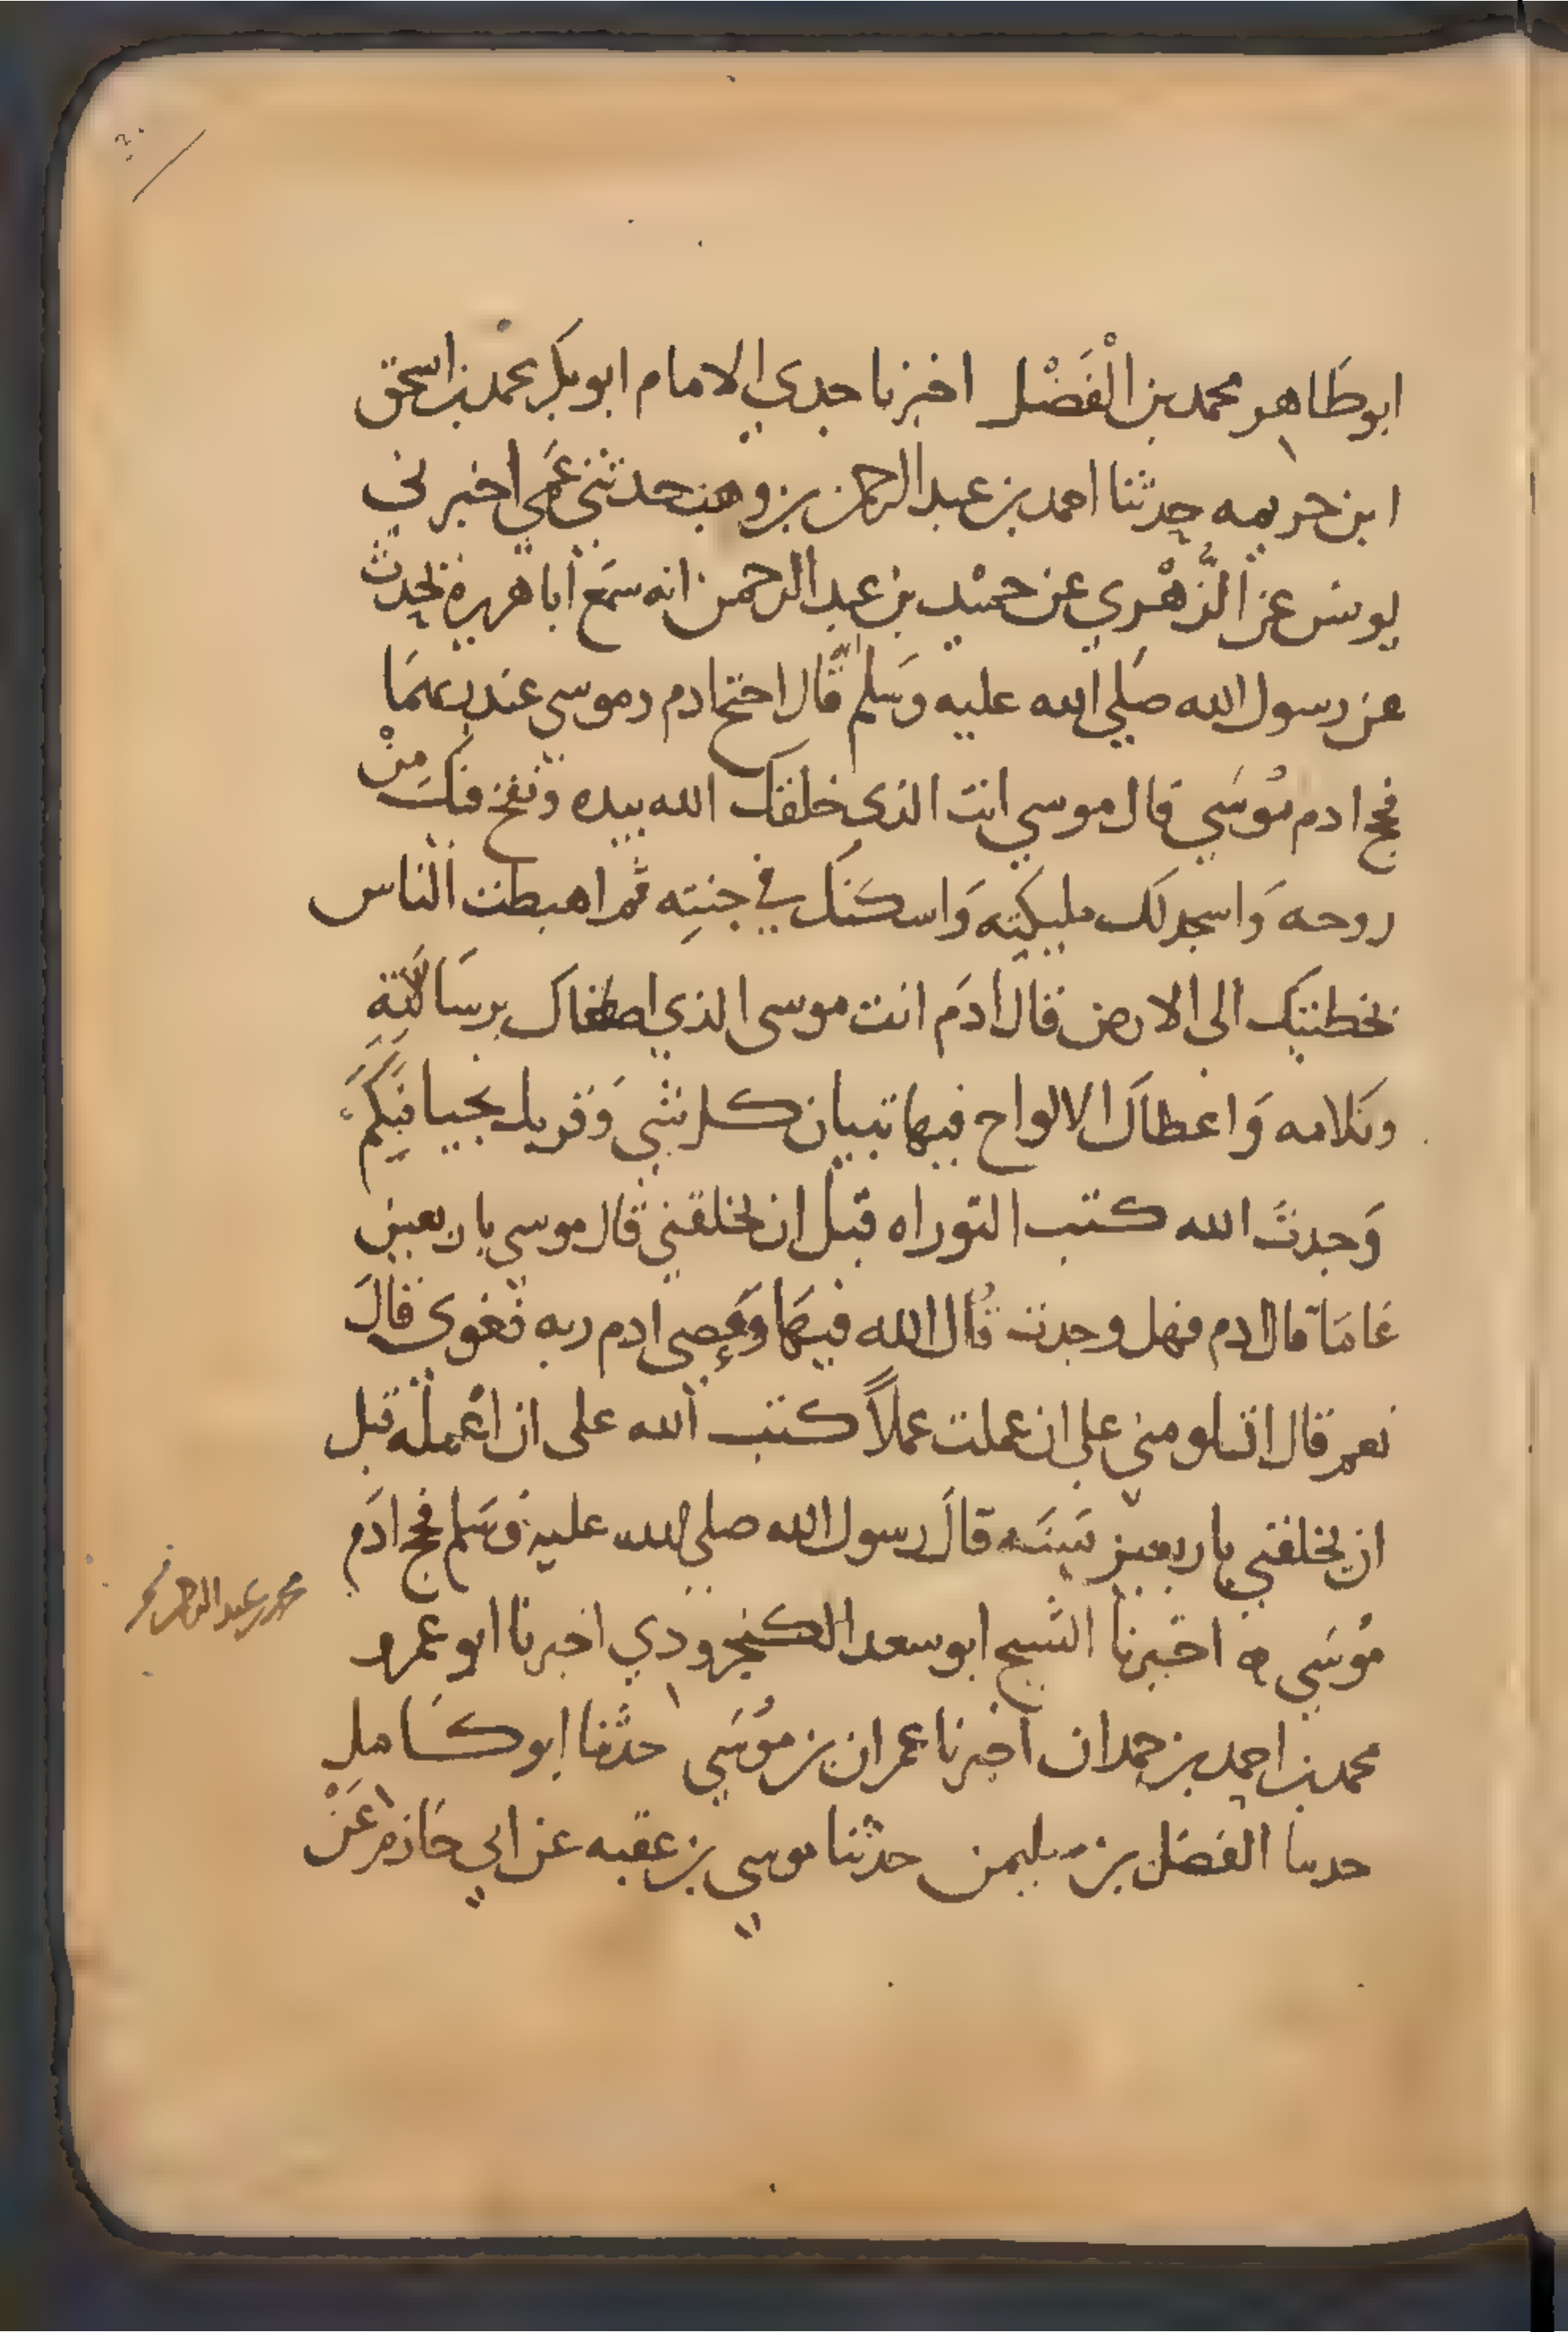 ابو طَاهر محمد بن الْفَضْل اخبرنا جدي الامام ابو بكر محمد بن اسحق
ابن خريمه حدثنا احمد بن عبد الرحمن بن وهب حدثني عَمي اخبرني
يونس عن الزُّهْري عن حميْد بن عبد الرحمن انه سمَع أبا هريرة يحدث
عن رسول الله صَلي الله عليه وَسَلم قَال احتج ادم وموسي عند ربهمَا
فحج ادم مُوسَي قال موسي انتَ الذي خلقكَ الله بيده ونفخ فيكَ مِنْ
روحه وَاسجد لك مليكته وَاسكنكَ في جنتِه ثم اهبطت الناس
بخطيتك الى الارض قال ادَم انت موسى الذي اصطفاك برسَالَاتِهِ
وبكلامه وَاعطاكَ الالواح فيها تبيان كل شي وَقربك نجيا فبِكَمَ
وَجدتَ الله كتب التوراه قبل ان يخلقني قال موسي باربعين
عَامَا قال ادم فهل وجدت قال الله فيهَا وَعصى ادم ربه فغوى قالَ
نعم قال افتلومني علي ان عملت عملاً كتب الله على ان اعْمله قبل
ان يخلقني باربعين سَنَه قالَ رسول الله صلي الله عليه وَسَلم فحج ادَم
مُوسَي ه اخبرنا الشيخ ابو سعد الكنجرودي اخبرنا ابو عمرو
محمد بن احمد بن حمدان اخبرنا عمران بن مُوسَي حدثنا ابو كَامل
حدثنا الفضل بن سليمن حدثنا موسي بن عقبه عن ابي حَازم عَنْ